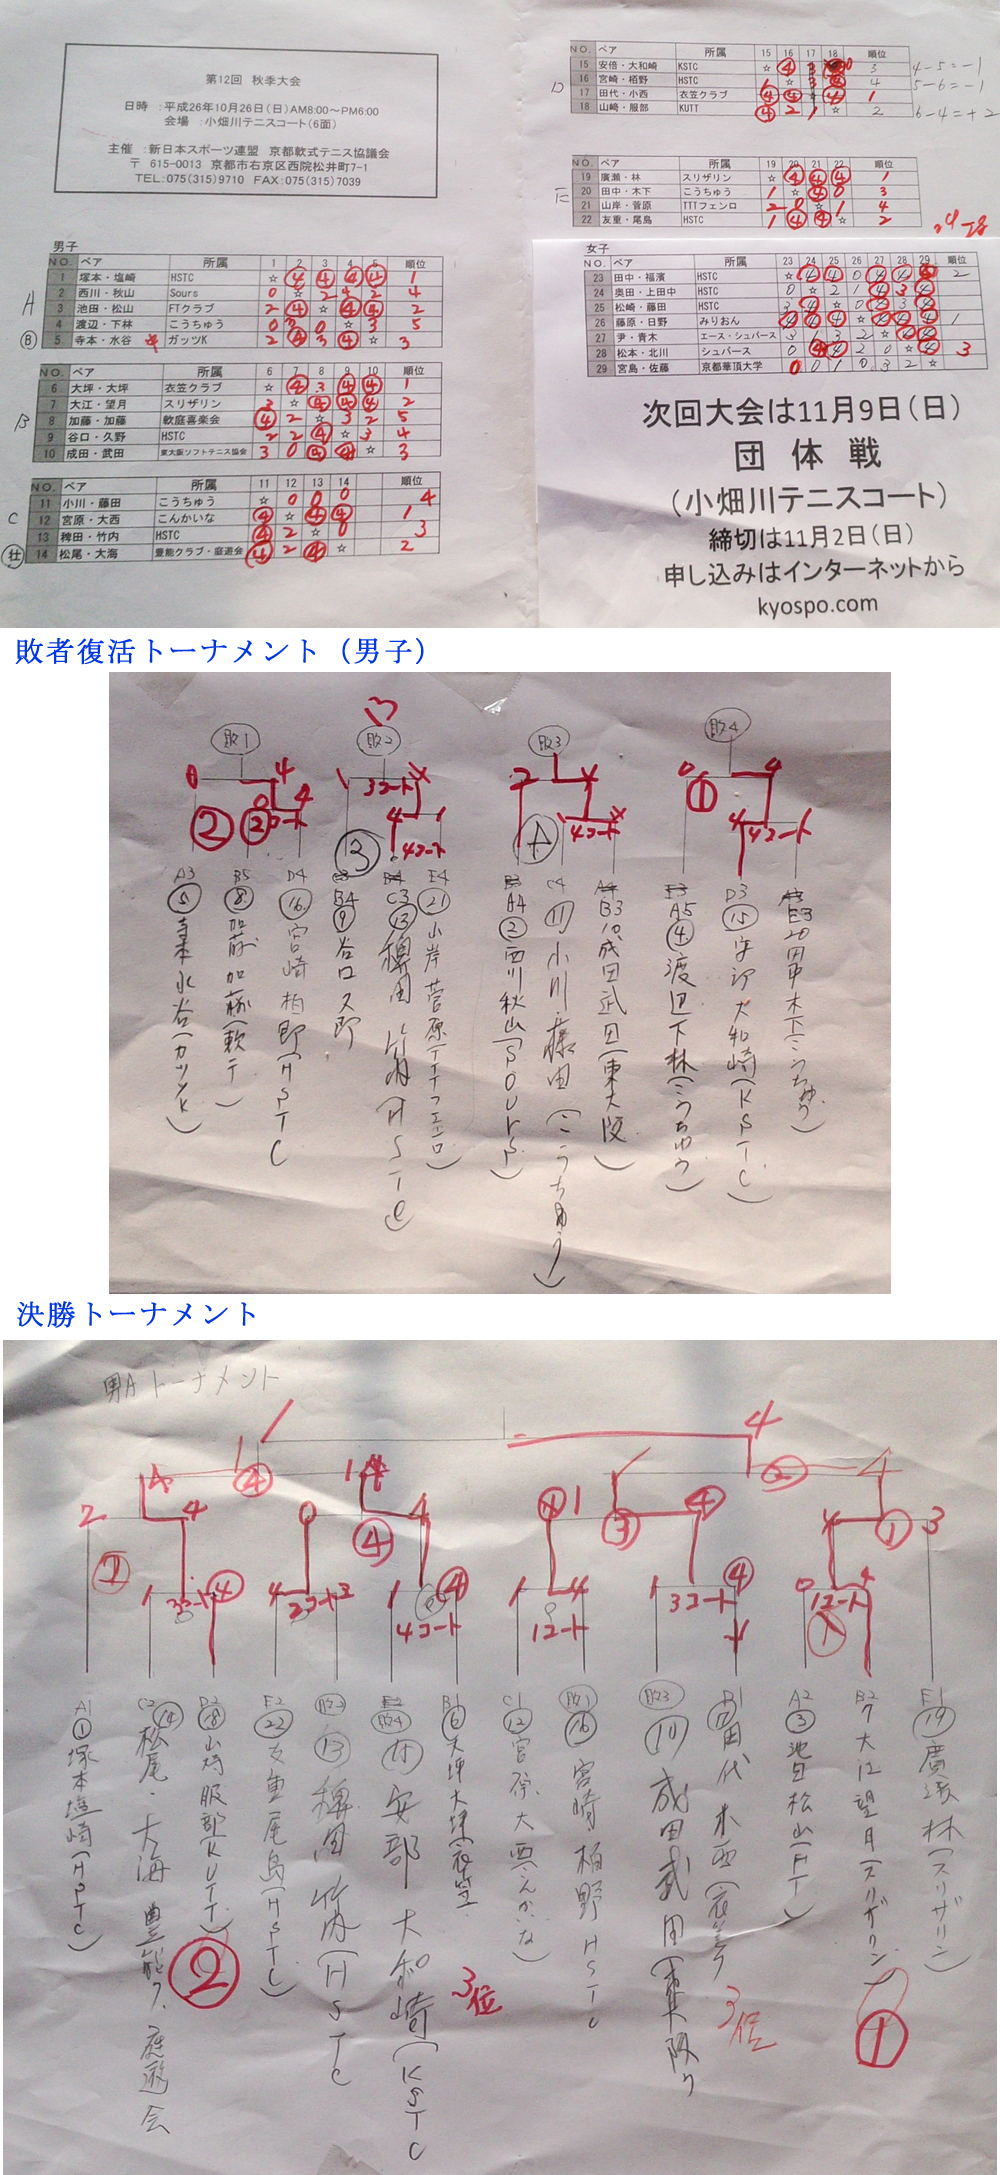 第12回 秋季大会
日時 :平成26年10月26日(日)AM8:00～PM6:00
会場 :小畑川テニスコート(6面)
主催 :新日本スポーツ連盟 京都軟式テニス協議会
〒 615-0013 京都市右京区西院松井町7-1
TEL:075(315)9710 FAX:075(315)7039
男子
NO. ペア 所属 1 2 3 4 5 順位
A
1 塚本・塩崎 HSTC ☆ ④ ④ ④ ④ 1
2 西川・秋山 Sours 0 ☆ 2 4 2 4
3 池田・松山 FTクラブ 2 ④ ☆ ④ ④ 2
4 渡辺・下林 こうちゅう 0 0 ☆ 3 5
5 寺本・水谷 ガッツK 2 ④ 3 ④ ☆ 3
B
NO. ペア 所属 6 7 8 9 10 順位
6 大坪・大坪 衣笠クラブ ☆ ④ 3 ④ ④ 1
7 大江・望月 スリザリン 3 ☆ ④ ④ ④ 2
8 加藤・加藤 軟庭喜楽会 ④ 2 ☆ 3 2 5
9 谷口・久野 HSTC 2 2 ④ ☆ 3 4
10 成田・武田 東大阪ソフトテニス協会 3 0 ④ ④ ☆ 3
C
NO. ペア 所属 11 12 13 14 順位
11 小川・藤田 こうちゅう ☆ 0 0 0 4
12 宮原・大西 こんかいな ④ ☆ ④ ④ 1
13 稗田・竹内 HSTC ④ 2 ☆ 0 3
14 松尾・大海 豊能クラブ・庭遊会 ④ 2 ④ ☆ 2
D
NO. ペア 所属 15 16 17 18 順位
15 安倍・大和崎 KSTC ☆ ④ 3 3
16 宮崎・栢野 HSTC 1 ☆ 3 ④ 4
17 田代・小西 衣笠クラブ ④ ④ ☆ ④ 1
18 山崎・服部 KUTT ④ 2 1 ☆ 2
4-5=-1
5-6=-1
6-4=+2
E
NO. ペア 所属 19 20 21 22 順位
19 廣瀬・林 スリザリン ☆ ④ ④ ④ 1
20 田中・木下 こうちゅう 1 ☆ ④ 0 3
21 山岸・菅原 TTTフェンロ 2 0 ☆ 1 4
22 友重・尾島 HSTC 1 ④ ④ ☆ 2
女子
NO. ペア 所属 23 24 25 26 27 28 29 順位
23 田中・福濱 HSTC ☆ ④ ④ 0 ④ ④ ④ 2
24 奥田・上田中 HSTC 0 ☆ 2 1 ④ 3 ④
25 松崎・藤田 HSTC 3 ④ ☆ 0 ④ 3 ④
26 藤原・日野 みりおん ④ ④ ④ ☆ ④ ④ ④ 1
27 尹・青木 エース・シュバース 3 1 3 2 ☆ ④ ④
28 松本・北川 シュバース 0 ④ ④ 2 0 ☆ ④ 3
29 宮島・佐藤 京都華頂大学 0 0 1 0 3 2 ☆
次回大会は11月9日(日)
団体戦
(小畑川テニスコート)
締切は11月2日(日)
申し込みはインターネットから
kyospo.com
敗者復活トーナメント（男子）
敗1
敗2
敗3
敗4
3コート
4コート
4コート
4コート
A3 ⑤ 寺本 水谷(ガッツK)
B5 ⑧ 加藤 加藤(軟テ)
D4 ⑯ 宮崎 栢野(HSTC
B4 ⑨ 谷口 久野
C3 ⑬ 稗田 竹内(HSTC)
E4 ㉑ 山岸 菅原(TTTフェンロ)
A4 ② 西川 秋山(SOURS)
C4 ⑪ 小川・藤田(こうちゅう)
B3 10 成田 武田(東大阪)
A5 ④ 渡辺 下林(こうちゅう)
D3 ⑮ 安部 大和崎(KSTC)
E3 20 田中 木下(こうちゅう)
決勝トーナメント
男Aトーナメント
3コート
2コート
4コート
1コート
3コート
1コート
A1 ① 塚本 塩崎(HSTC)
C2 ⑭ 松尾・大海 豊能ク、庭遊会
D2 ⑱ 山崎 服部(KUTT)
②
E2 ㉒ 友重 尾島(HSTC)
敗2 ⑬ 稗田 竹内(HSTC
敗4 ⑮ 安部 大和崎(KSTC
B1 ⑥ 大坪 大坪(衣笠
3位
C1 ⑫ 宮原 大西(こんかいな)
敗1 ⑯ 宮崎 栢野 HSTC
敗3 ⑩ 成田 武田(東大阪)
D1 ⑰ 田代 小西(衣笠ク
3位
A2 ③ 池田 松山(FT)
B2 7 大江 望月(スリザリン)
①
E1 ⑲ 廣瀬 林(スリザリン)